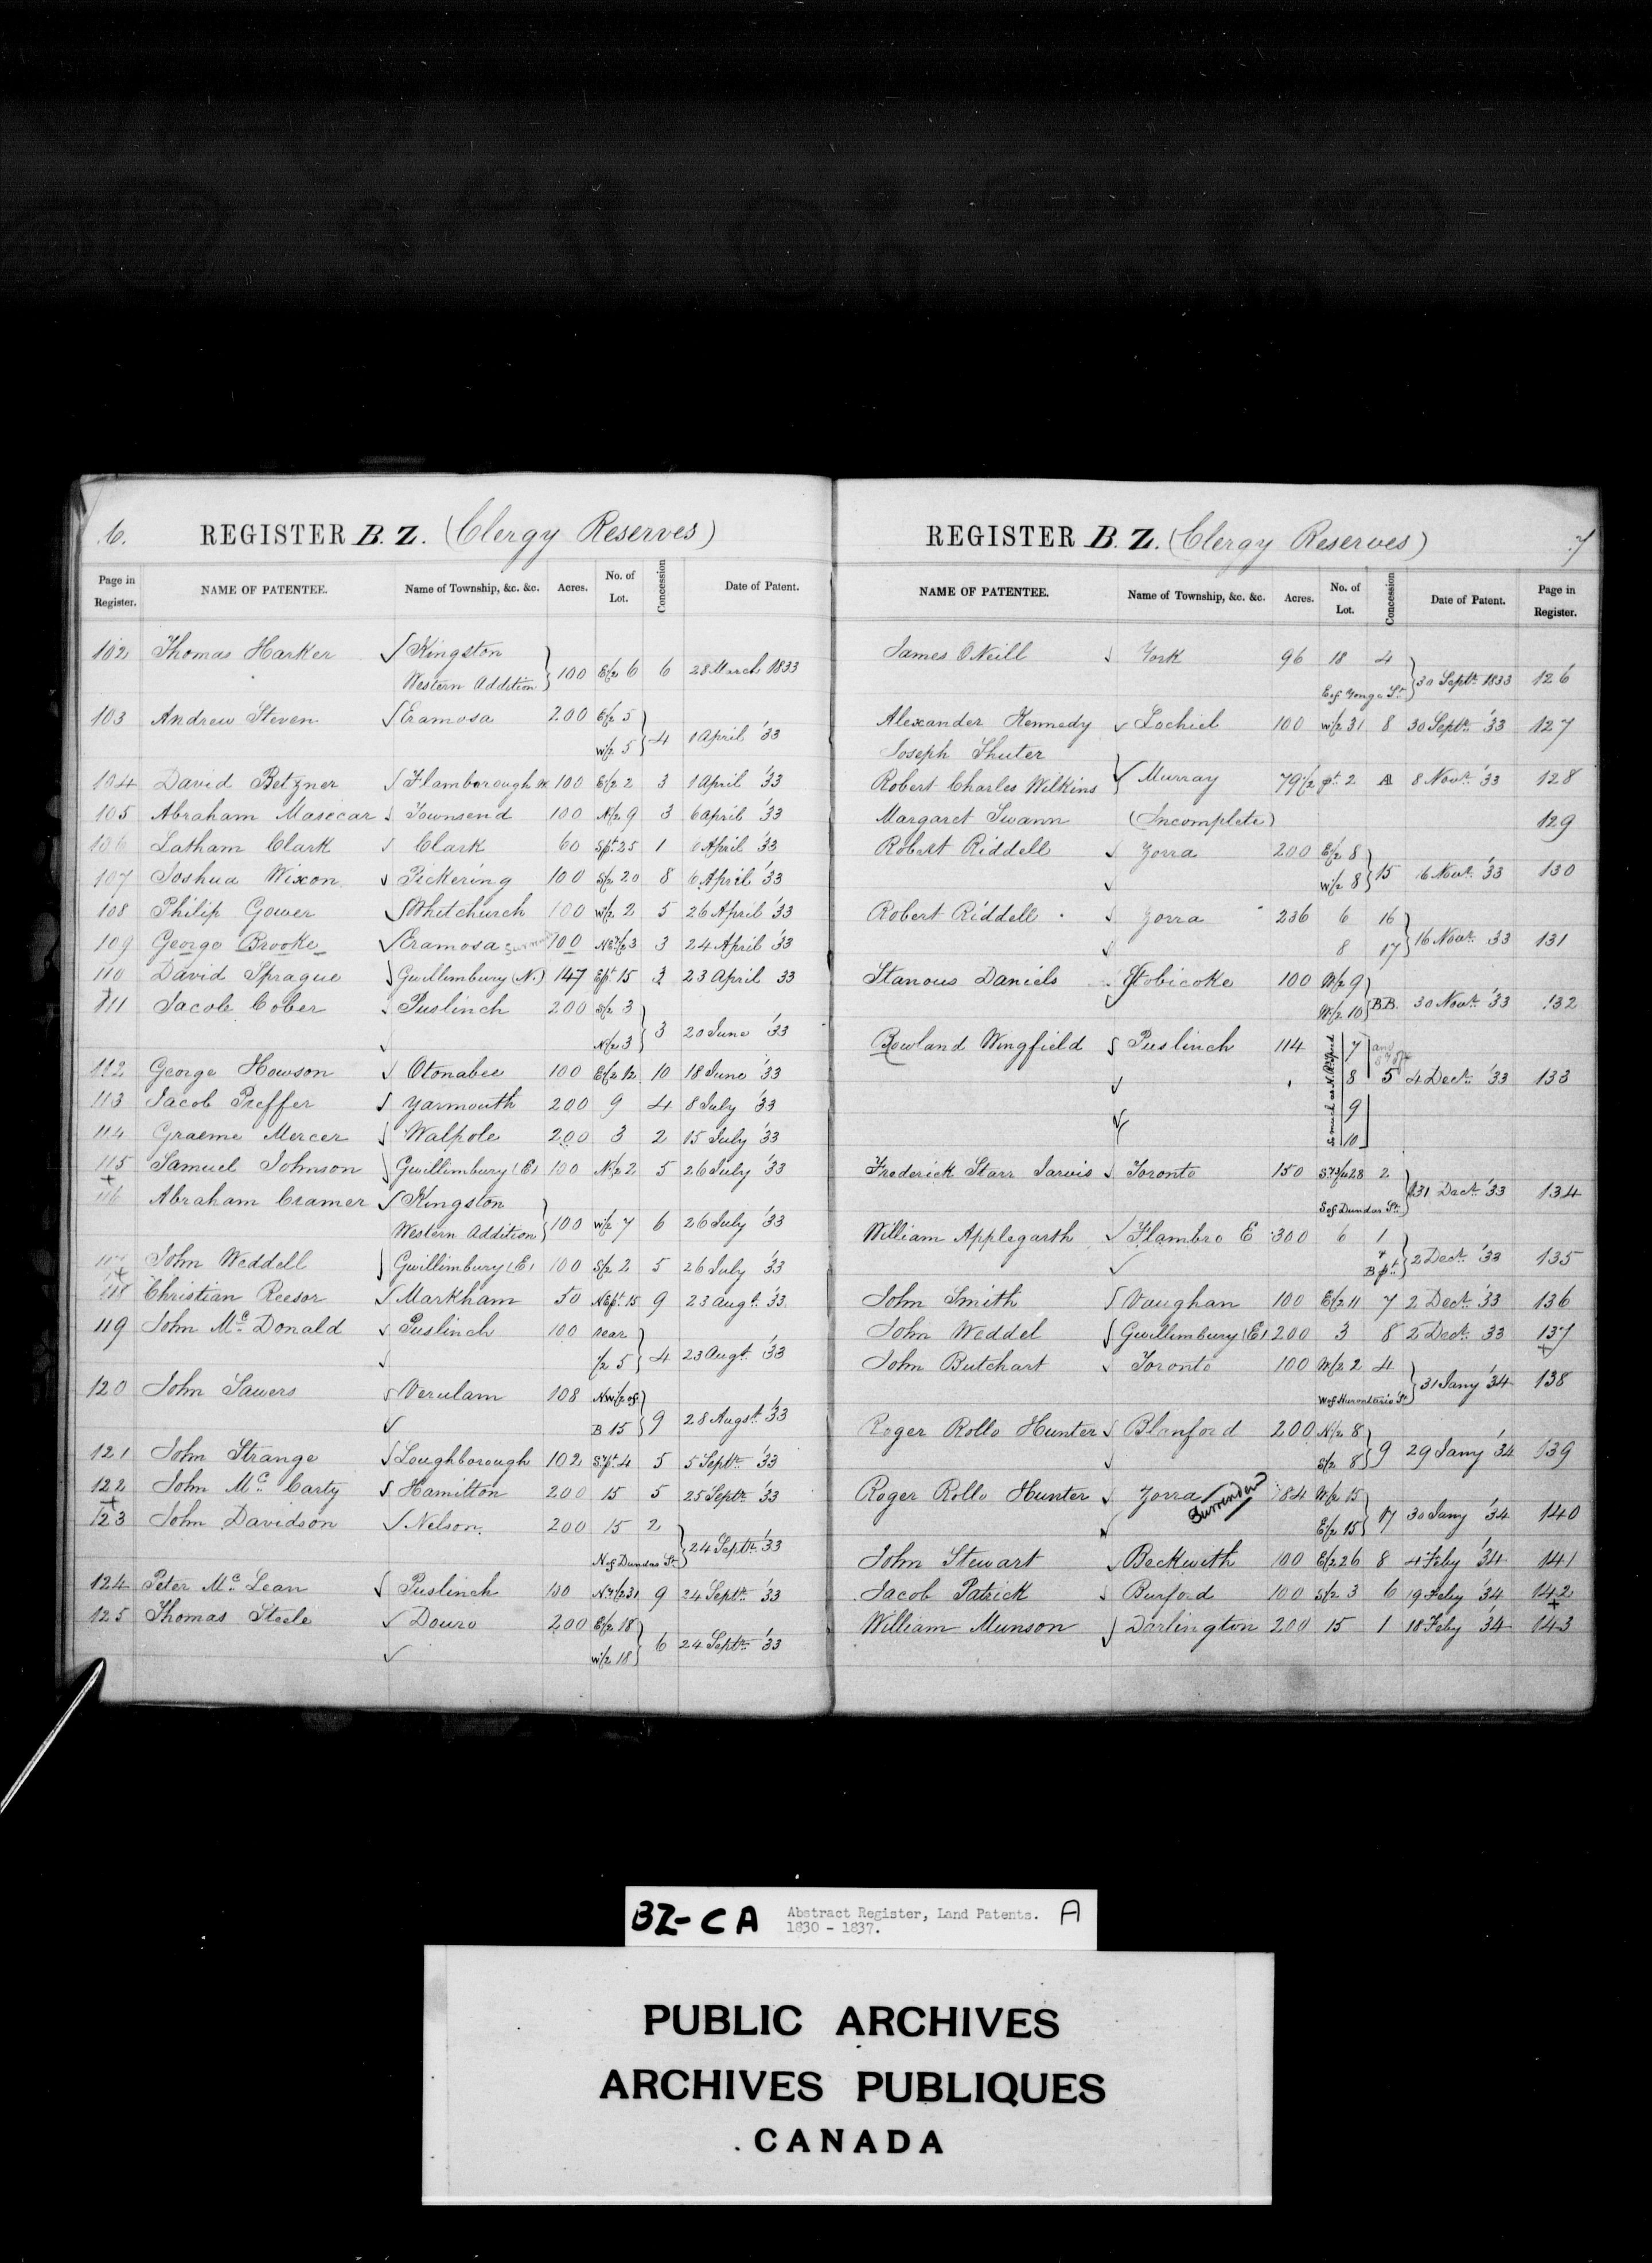 6.
REGISTER B. Z. (Clergy Reserves)
Page in Register. NAME OF PATENTEE. Name of Township, &c. &c. Acres. No. of Lot. Concession Date of Patent.
102 Thomas Harker √ Kingston
Western Addition } 100 E/2 6 6 28 March 1833
103 Andrew Steven √ Eramosa 200 E/2 5
W/2 5 } 4 1 April '33
104 David Betzner √ Flamborough W 100 E/2 2 3 1 April '33
105 Abraham Masecar √ Townsend 100 N/2 9 3 6 April '33
106 Latham Clark √ Clark 60 Spt. 25 1 6 April '33
107 Joshua Wixon √ Pickering 100 S/2 20 8 6 April '33
108 Philip Gower √ Whitchurch 100 W/2 2 5 26 April '33
109 George Brooke √ Eramosa 100 NE/2 3 3 24 April '33
110 David Sprague √ Gwillimbury (N.) 147 Ept. 15 3 23 April 33
111 Jacob Cober √ Puslinch 200 S/2 3
√ N/2 3 } 3 20 June '33
112 George Howson √ Otonabee 100 E/2 12 10 18 June '33
113 Jacob Preffer √ Yarmouth 200 9 4 8 July '33
114 Graeme Mercer √ Walpole 200 3 2 15 July '33
115 Samuel Johnson √ Gwillimbury (E) 100 N/2 2 5 26 July '33
116 Abraham Cramer √ Kingston
Western Addition } 100 W/2 7 6 26 July '33
117 John Weddell √ Gwillimbury (E) 100 S/2 2 5 26 July '33
118 Christian Reesor √ Markham 50 NEpt. 15 9 23 Augt. '33
119 John McDonald √ Puslinch 100 rear
√ /2 5 } 4 23 Augt. '33
120 John Sawers √ Verulam 108 NW/2 of
√ B 15 } 9 28 Augst. '33
121 John Strange √ Loughborough 102 S.pt. 4 5 5 Septr. '33
122 John McCarty √ Hamilton 200 15 5 25 Septr. '33
123 John Davidson √ Nelson. 200 15 2
N of Dundas St. } 24 Septr. '33
124 Peter McLean √ Puslinch 100 N/2 31 9 24 Septr. '33
125 Thomas Steele √ Douro 200 E/2 18
√ W/2 18 } 6 24 Septr. '33
7
REGISTER B. Z. (Clergy Reserves)
NAME OF PATENTEE. Name of Township, &c. &c. Acres. No. of Lot. Concession Date of Patent. Page in Register.
James O'Neill √ York 96 18 4
E of Yonge St. } 30 Septr. 1833 126
Alexander Kennedy √ Lochiel 100 W/2 31 8 30 Septr. '33 127
Joseph Shuter
Robert Charles Wilkins } √ Murray 79 1/2 pt. 2 A 8 Novr. '33 128
Margaret Swann (Incomplete) 129
Robert Riddell √ Zorra 200 E/2 8
√ W/2 8 } 15 16 Novr. '33 130
Robert Riddell √ Zorra 236 6 16
√ 8 17 } 16 Novr. 33 131
Stanous Daniels Etobicoke 100 W/2 9
√ W/2 10 } B.B. 30 Novr. '33 132
Rowland Wingfield √ Puslinch 114 7
√ 8 5 4 Decr. '33 133
√ 9
√ 10
Frederick Starr Jarvis √ Toronto 150 28 2
S of Dundas St. } 31 Decr. '33 134
William Applegarth √ Flambro E 300 6 1
√ B pt. } 2 Decr. '33 135
John Smith √ Vaughan 100 E/2 11 7 2 Decr. '33 136
John Weddel √ Gwillimbury (E) 200 3 8 2 Decr. 33 137
John Butchart √ Toronto 100 W/2 2 4
W of Hurontario St. } 31 Jany '34 138
Roger Rollo Hunter √ Blanford 200 N/2 8
√ S/2 8 } 9 29 Jany '34 139
Roger Rollo Hunter √ Zorra Surrender? 184 W/2 15
√ E/2 15 } 17 30 Jany '34 140
John Stewart √ Beckwith 100 E/2 26 8 4 Feby '34 141
Jacob Patrick √ Burford 100 S/2 3 6 19 Feby '34 142
William Munson √ Darlington 200 15 1 18 Feby '34 143
BZ-CA Abstract Register, Land Patents. A
1830 - 1837.
PUBLIC ARCHIVES
ARCHIVES PUBLIQUES
CANADA